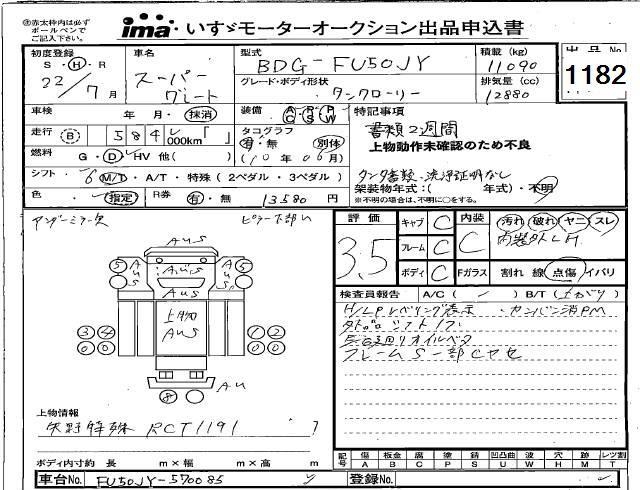 ※赤太枠内は必ず
ボールペンで
ご記入下さい。
ima いすゞモーターオークション出品申込書
出品No
1182
初度登録
S・H・R
22/7月
車名
スーパーグレート
型式
BDG-FU50JY
グレード・ボディ形状
タンクローリー
積載(kg)
11090
排気量(cc)
12880
車検
年 月・抹消
装備
A/C R/S P/W
走行 B 584,000km「 」
タコグラフ
有・無 別体
(10年06月)
燃料 G・D・HV 他( )
シフト 6 M/T・A/T・特殊(2ペダル・3ペダル)
色 指定 R券 有・無 13580円
特記事項
書類2週間
上物動作未確認のため不良
タンク書類・洗浄証明なし
架装物年式:( 年式)・不明
※不明の場合は、不明に○をする。
アンダーミラー欠
ピラー下部
AUS
上物
AUS
上物情報
矢野特殊 RCT1191
ボディ内寸約 長 m×幅 m×高 m
車台No. FU50JY-570085
評価
3.5
キャブ C
フレーム C
ボディ C
内装 C
汚れ 破れ ヤニ スレ
Fガラス 割れ 線 点傷 イバリ
検査員報告 A/C( ) B/T(上がり)
H/LPレベリング表示・カンバン消PM
フレームS一部Cヤセ
記号 傷A 板金B 腐C 塗P 錆S 凹凸曲U 波W 穴H 跡M レツ割T
登録No.